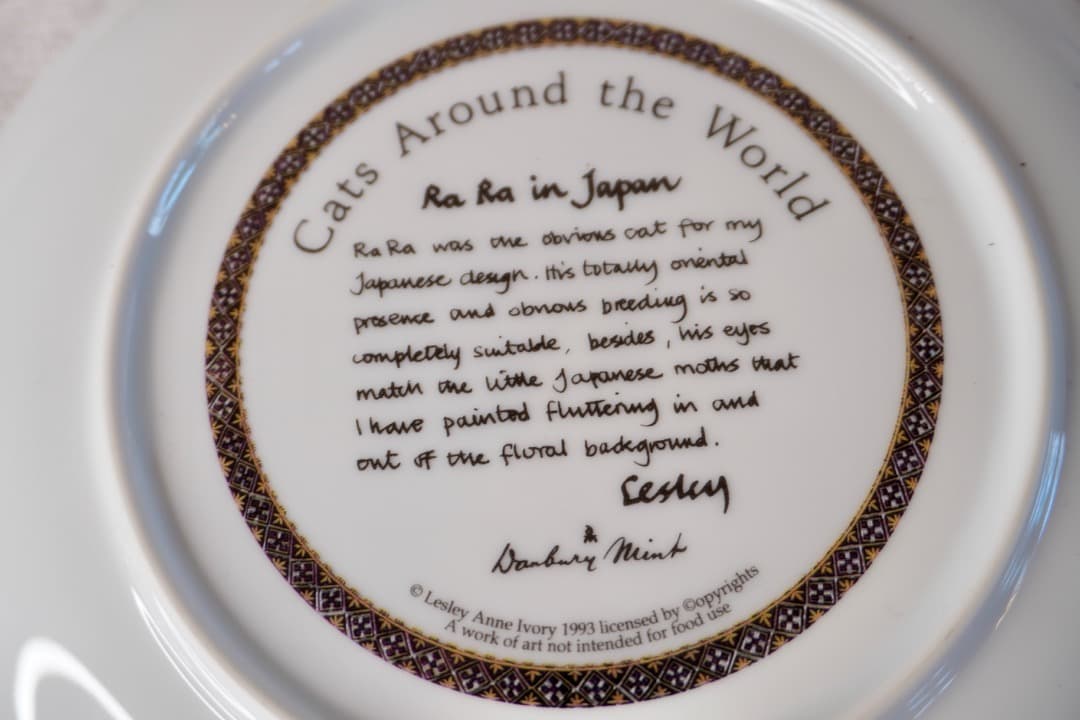 Cats Around the World
Ra Ra in Japan
Ra Ra was the obvious cat for my
Japanese design. His totally oriental
presence and obvious breeding is so
completely suitable, besides, his eyes
match the little Japanese moths that
I have painted fluttering in and
out of the floral background.
Lesley
Danbury Mint
© Lesley Anne Ivory 1993 licensed by ©opyrights
A work of art not intended for food use